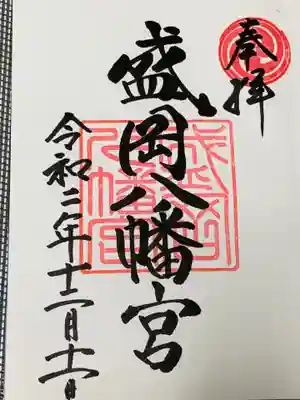 奉拝
盛岡八幡宮
令和二年十二月十一日